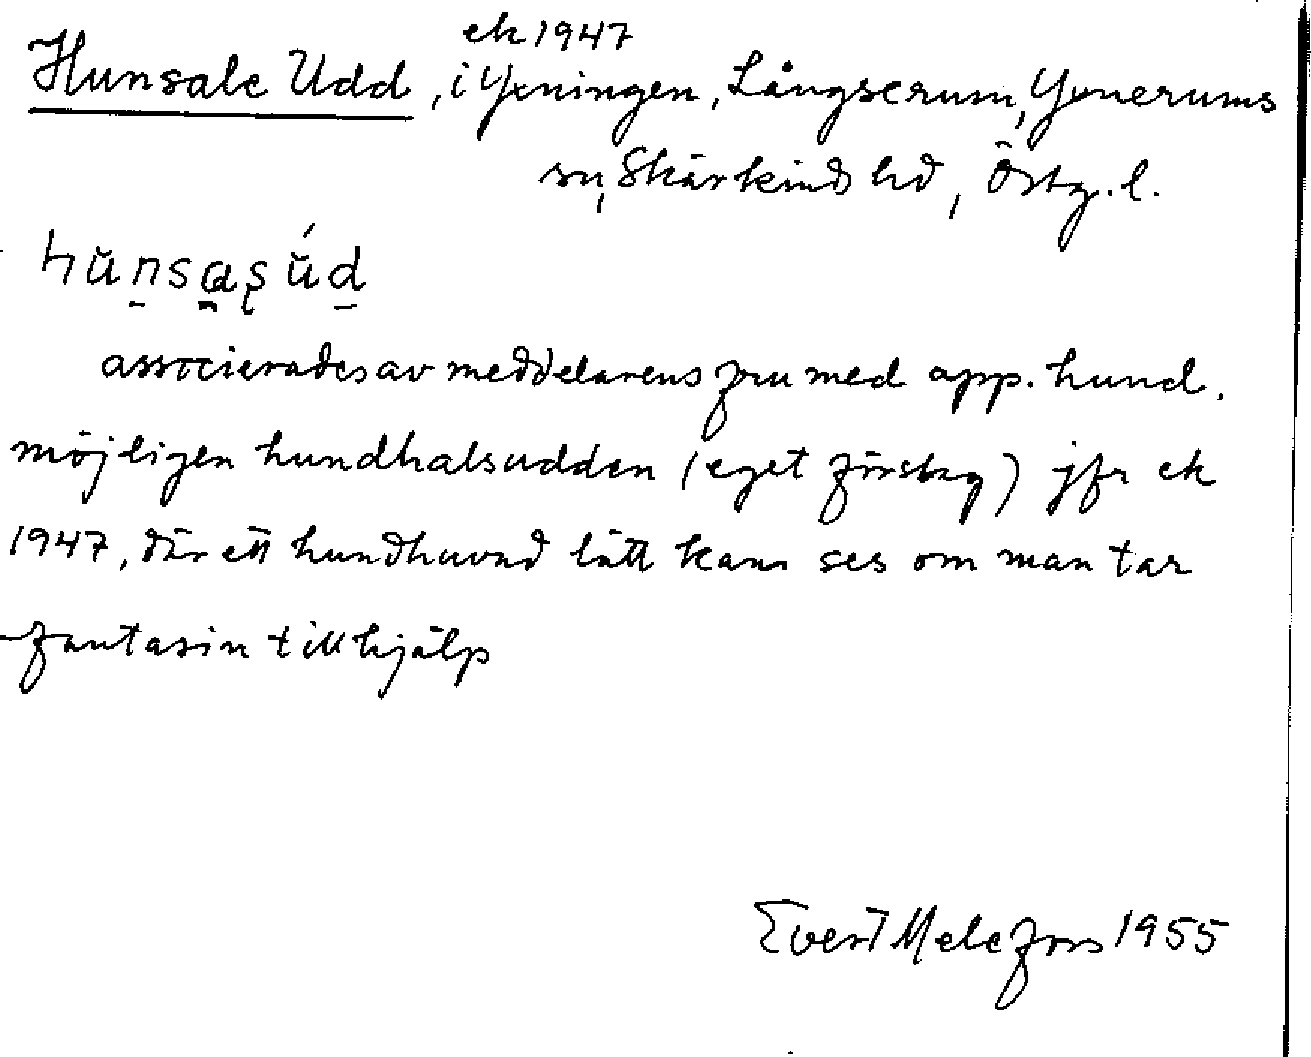 ek 1947
Hunsale Udd, i Yxningen, Långserum, Yxnerums
sn, Skärkind hd, Östg. l.
associerades av meddelarens fru med app. hund.
möjligen hundhalsudden (eget förslag) jfr ek
1947, där ett hundhuvud lätt kan ses om man tar
fantasin till hjälp
Evert Melefors 1955